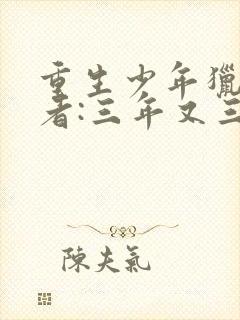 重生少年獵
者:三年又三
陳夫氣